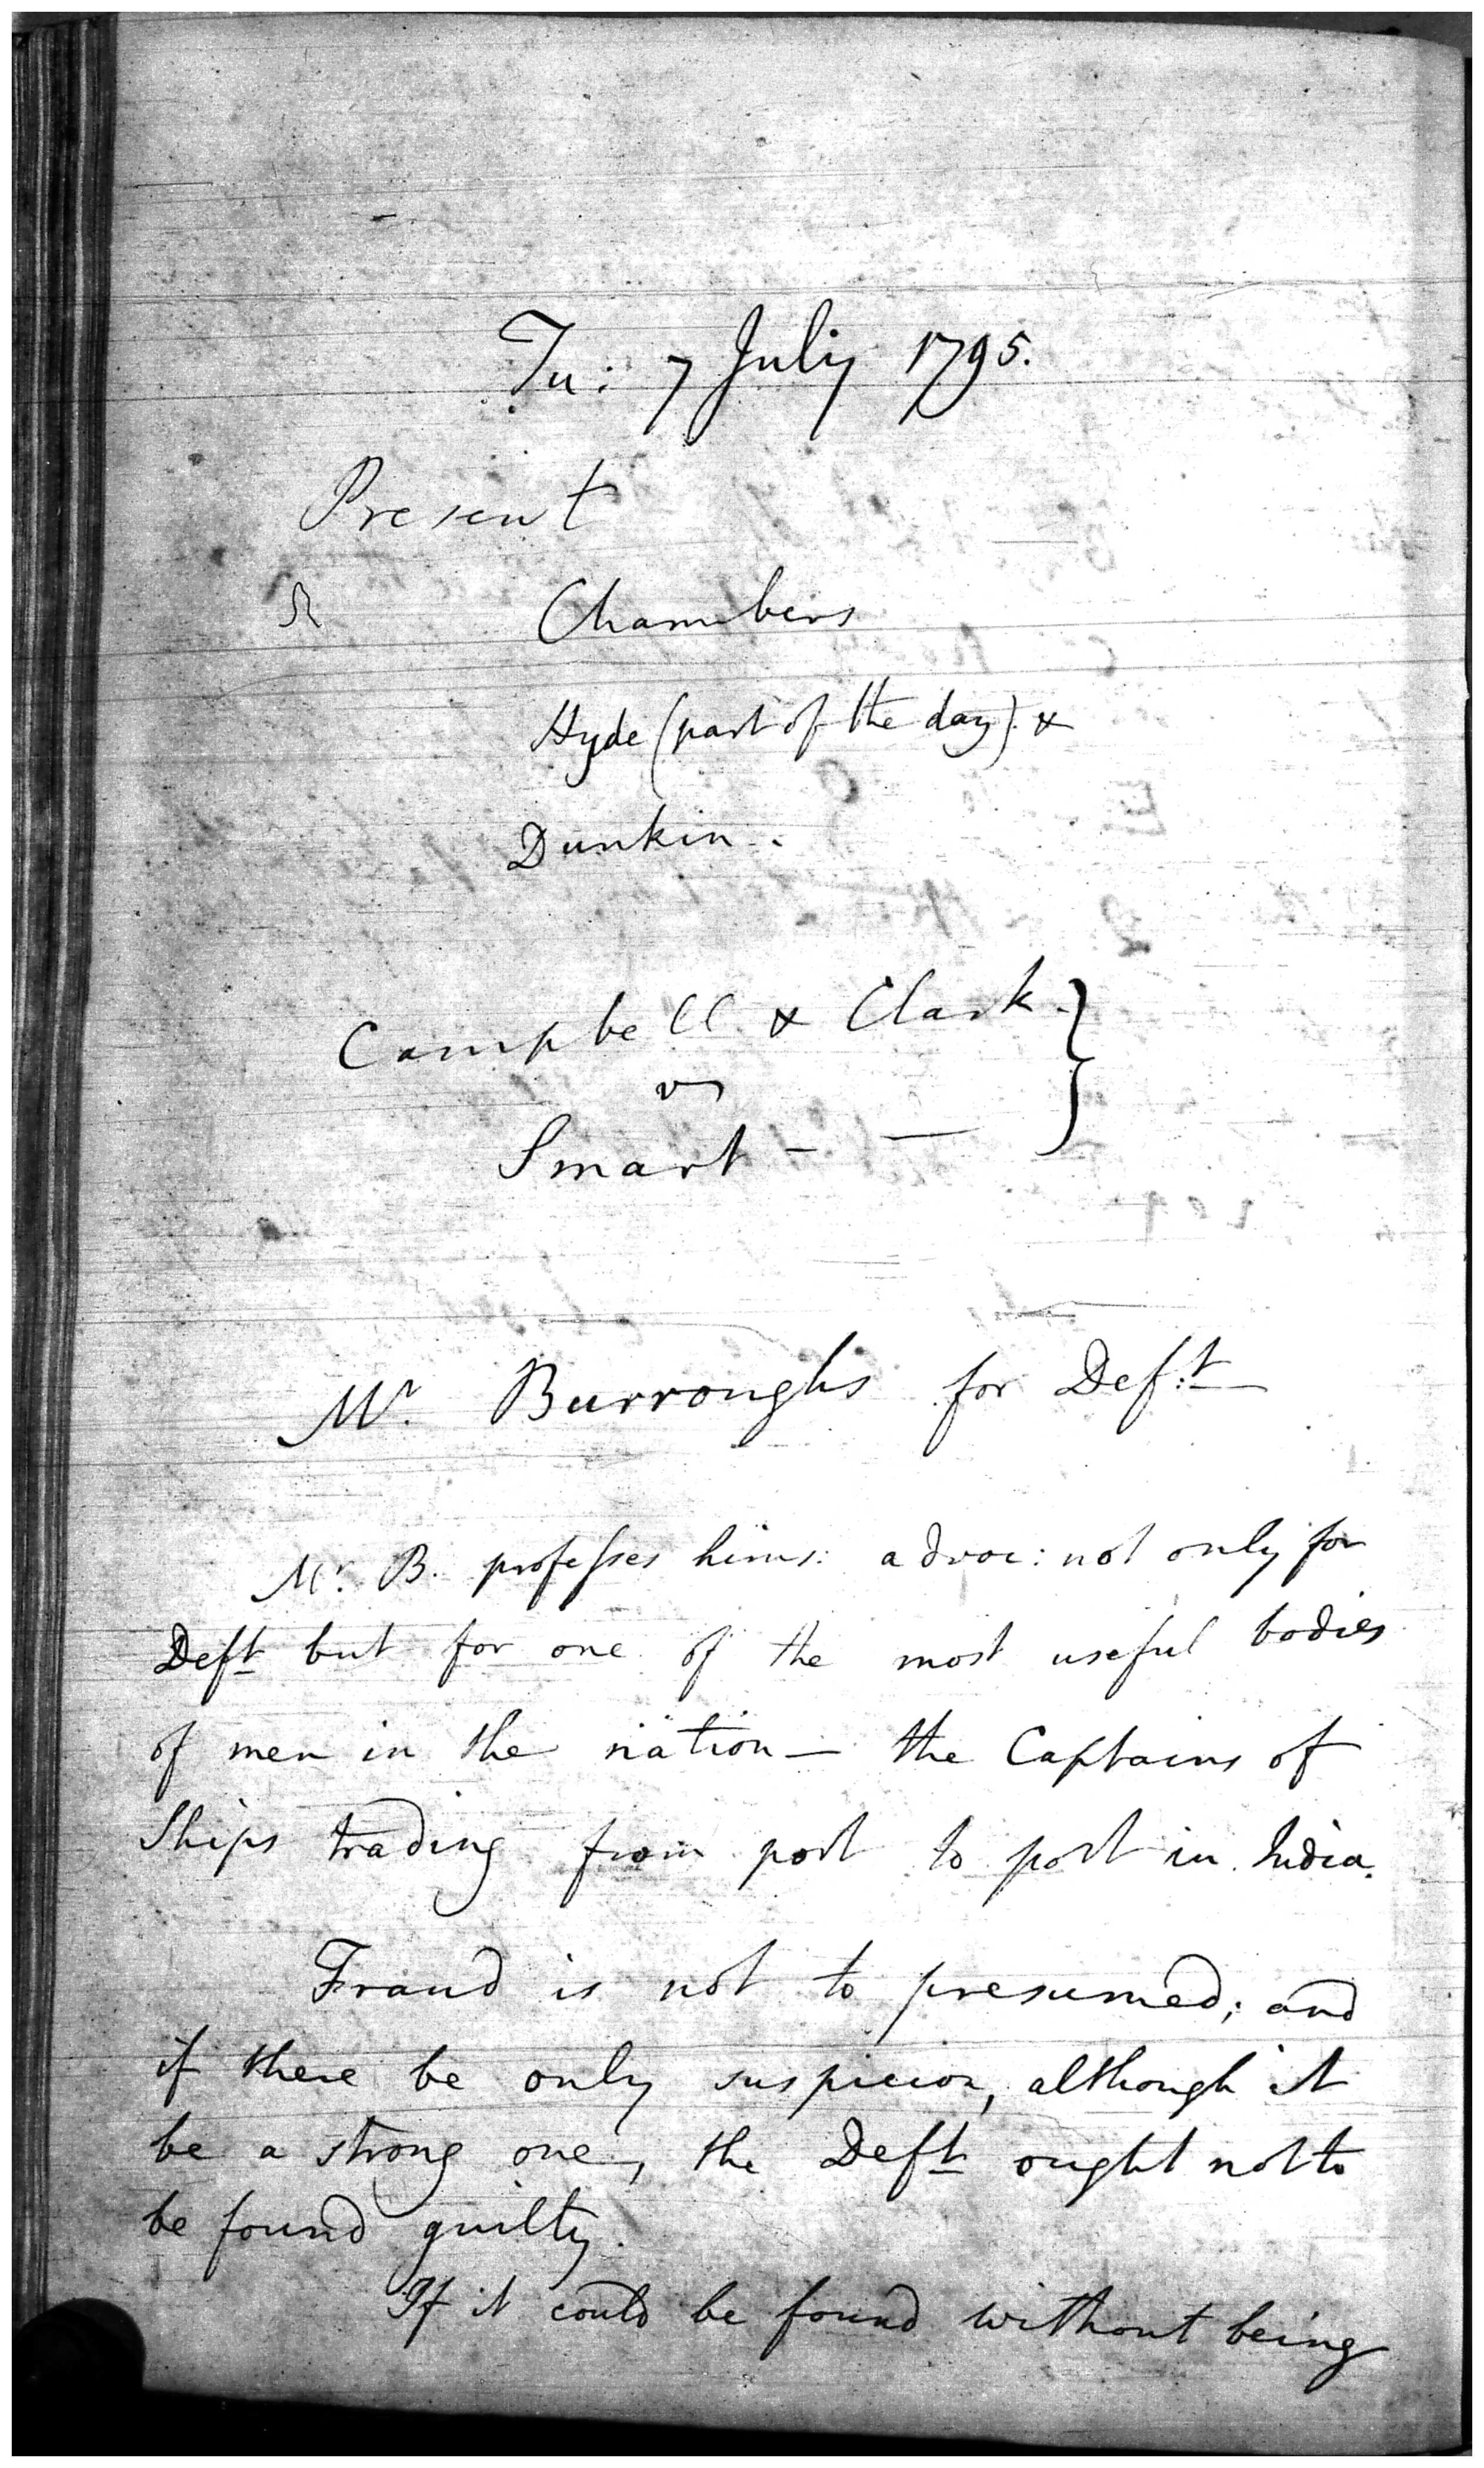 Tu: 7 July 1795.
Present
Chambers
Hyde (part of the day) &
Dunkin.
Campbell & Clark
vs
Smart —
Mr. Burroughs for Deft
Mr. B. professes hims: advoc: not only for
Deft but for one of the most useful bodies
of men in the nation — the Captains of
Ships trading from port to port in India.
Fraud is not to presumed; and
if there be only suspicion, although it
be a strong one, the Deft ought not to
be found guilty.
If it could be found without being